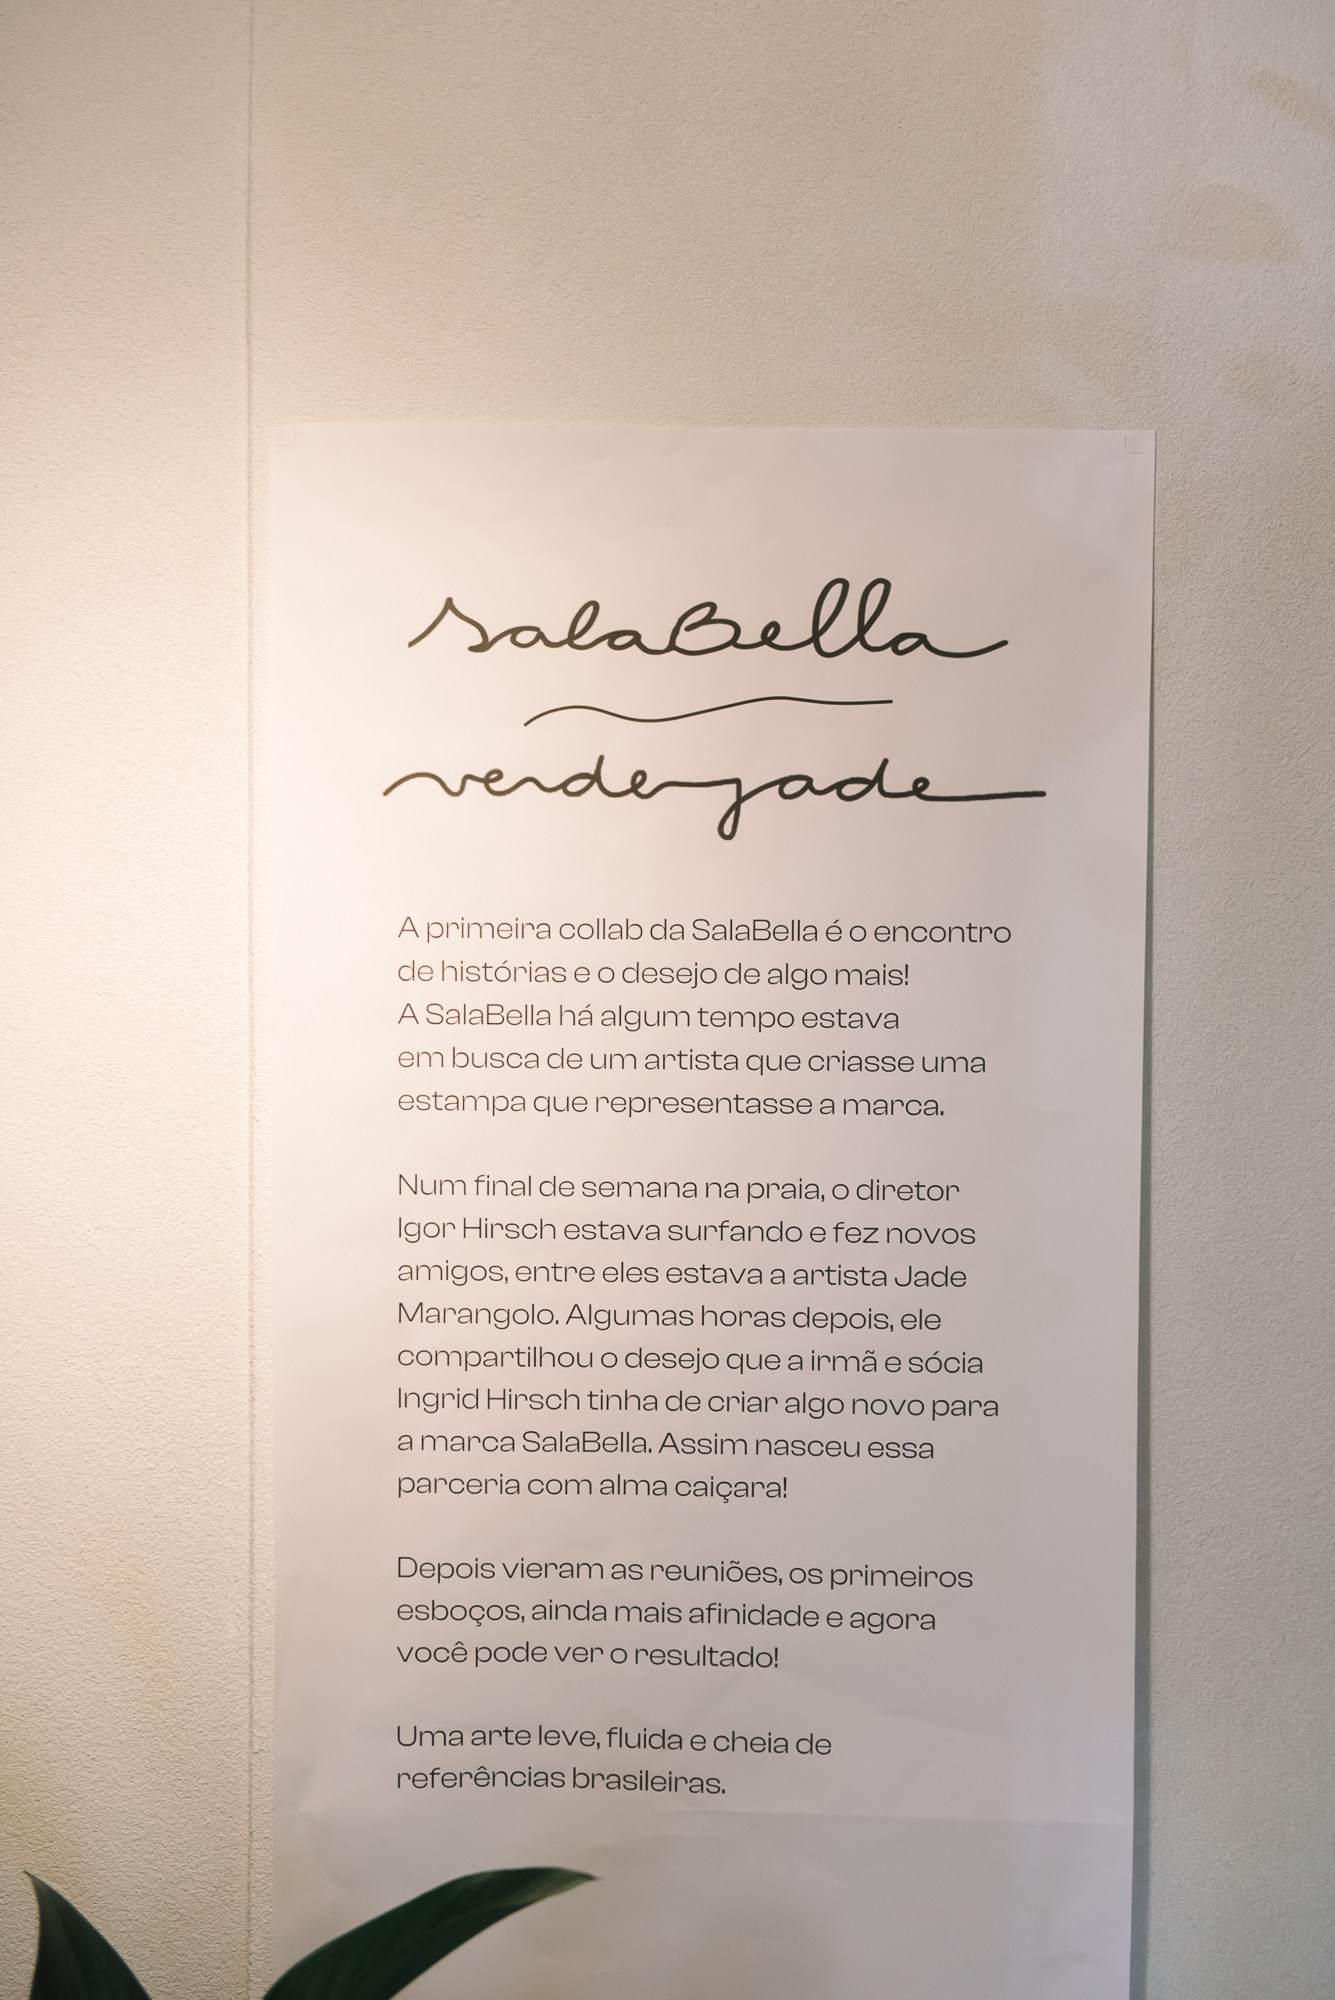 salaBella
verdejade
A primeira collab da SalaBella é o encontro
de histórias e o desejo de algo mais!
A SalaBella há algum tempo estava
em busca de um artista que criasse uma
estampa que representasse a marca.
Num final de semana na praia, o diretor
Igor Hirsch estava surfando e fez novos
amigos, entre eles estava a artista Jade
Marangolo. Algumas horas depois, ele
compartilhou o desejo que a irmã e sócia
Ingrid Hirsch tinha de criar algo novo para
a marca SalaBella. Assim nasceu essa
parceria com alma caiçara!
Depois vieram as reuniões, os primeiros
esboços, ainda mais afinidade e agora
você pode ver o resultado!
Uma arte leve, fluida e cheia de
referências brasileiras.